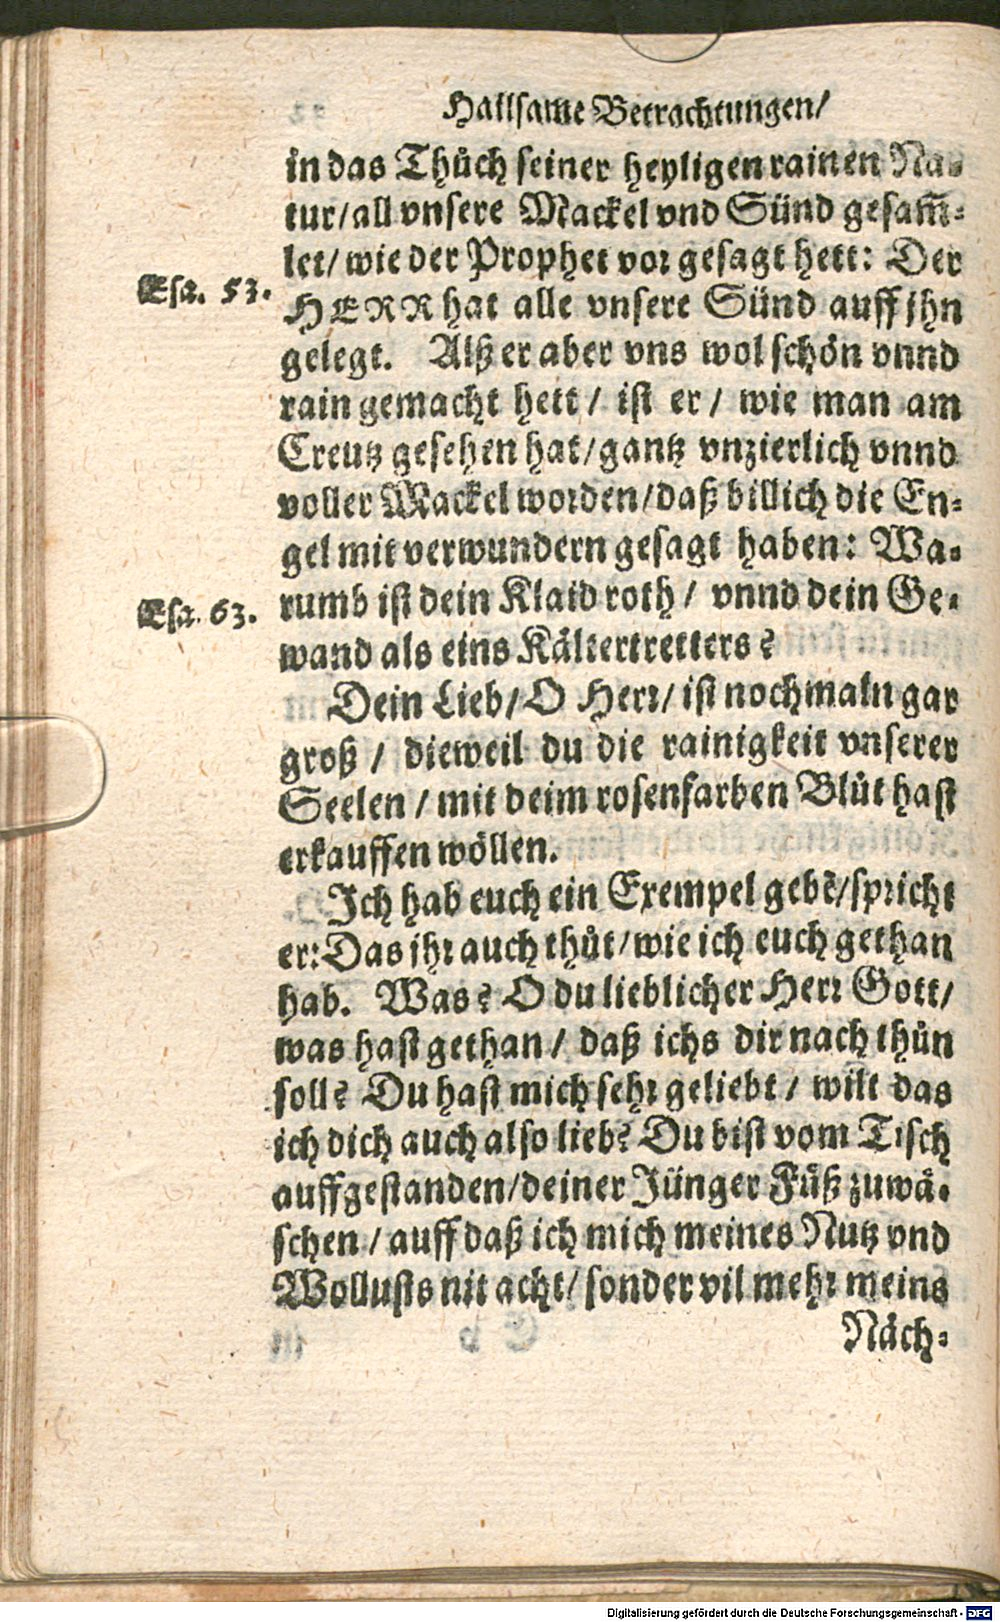 Hailsame Betrachtungen/
in das Thůch seiner heyligen rainen Na-
tur/all vnsere Mackel vnd Sünd gesam̃-
let/ wie der Prophet vor gesagt hett: Der
Esa. 53.
HERR hat alle vnsere Sünd auff jhn
gelegt. Alß er aber vns wol schön vnnd
rain gemacht hett / ist er / wie man am
Creutz gesehen hat/gantz vnzierlich vnnd
voller Mackel worden/daß billich die En-
gel mit verwundern gesagt haben: Wa-
Esa. 63.
rumb ist dein Klaid roth / vnnd dein Ge-
wand als eins Kältertretters?
Dein Lieb/O Herr/ ist nochmaln gar
groß / dieweil du die rainigkeit vnserer
Seelen / mit deim rosenfarben Blůt hast
erkauffen wöllen.
Ich hab euch ein Exempel gebẽ/spricht
er: Das jhr auch thůt/wie ich euch gethan
hab. Was? O du lieblicher Herr Gott/
was hast gethan / daß ichs dir nach thůn
soll? Du hast mich sehr geliebt / wilt das
ich dich auch also lieb? Du bist vom Tisch
auffgestanden/deiner Jünger Füß zuwä-
schen / auff daß ich mich meines Nutz vnd
Wollusts nit acht/ sonder vil mehr meins
Näch-
Digitalisierung gefördert durch die Deutsche Forschungsgemeinschaft - DFG